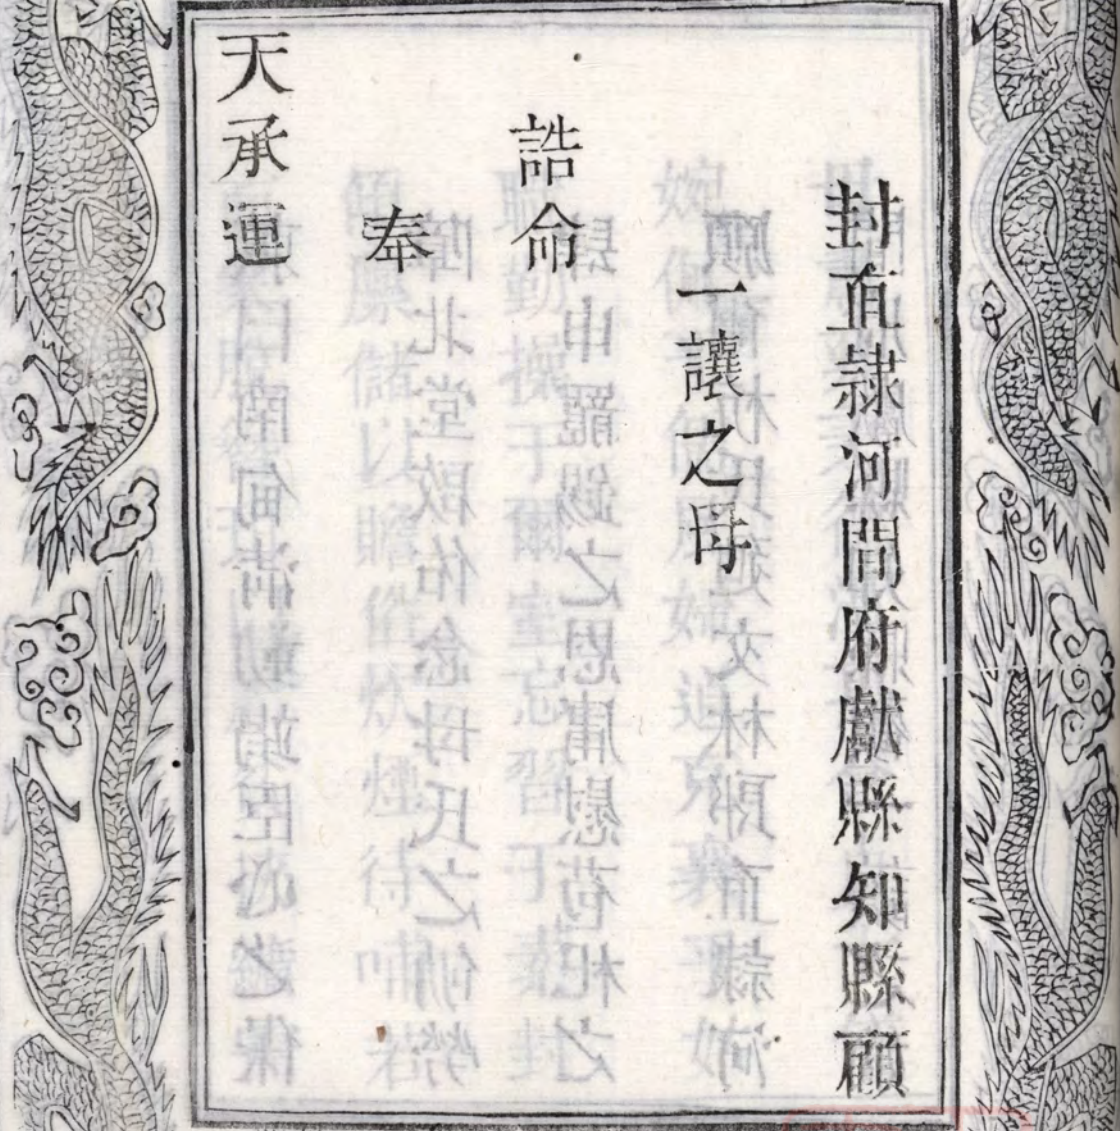 封直隷河間府獻縣知縣顧
一讓之母
誥命
奉
天承運